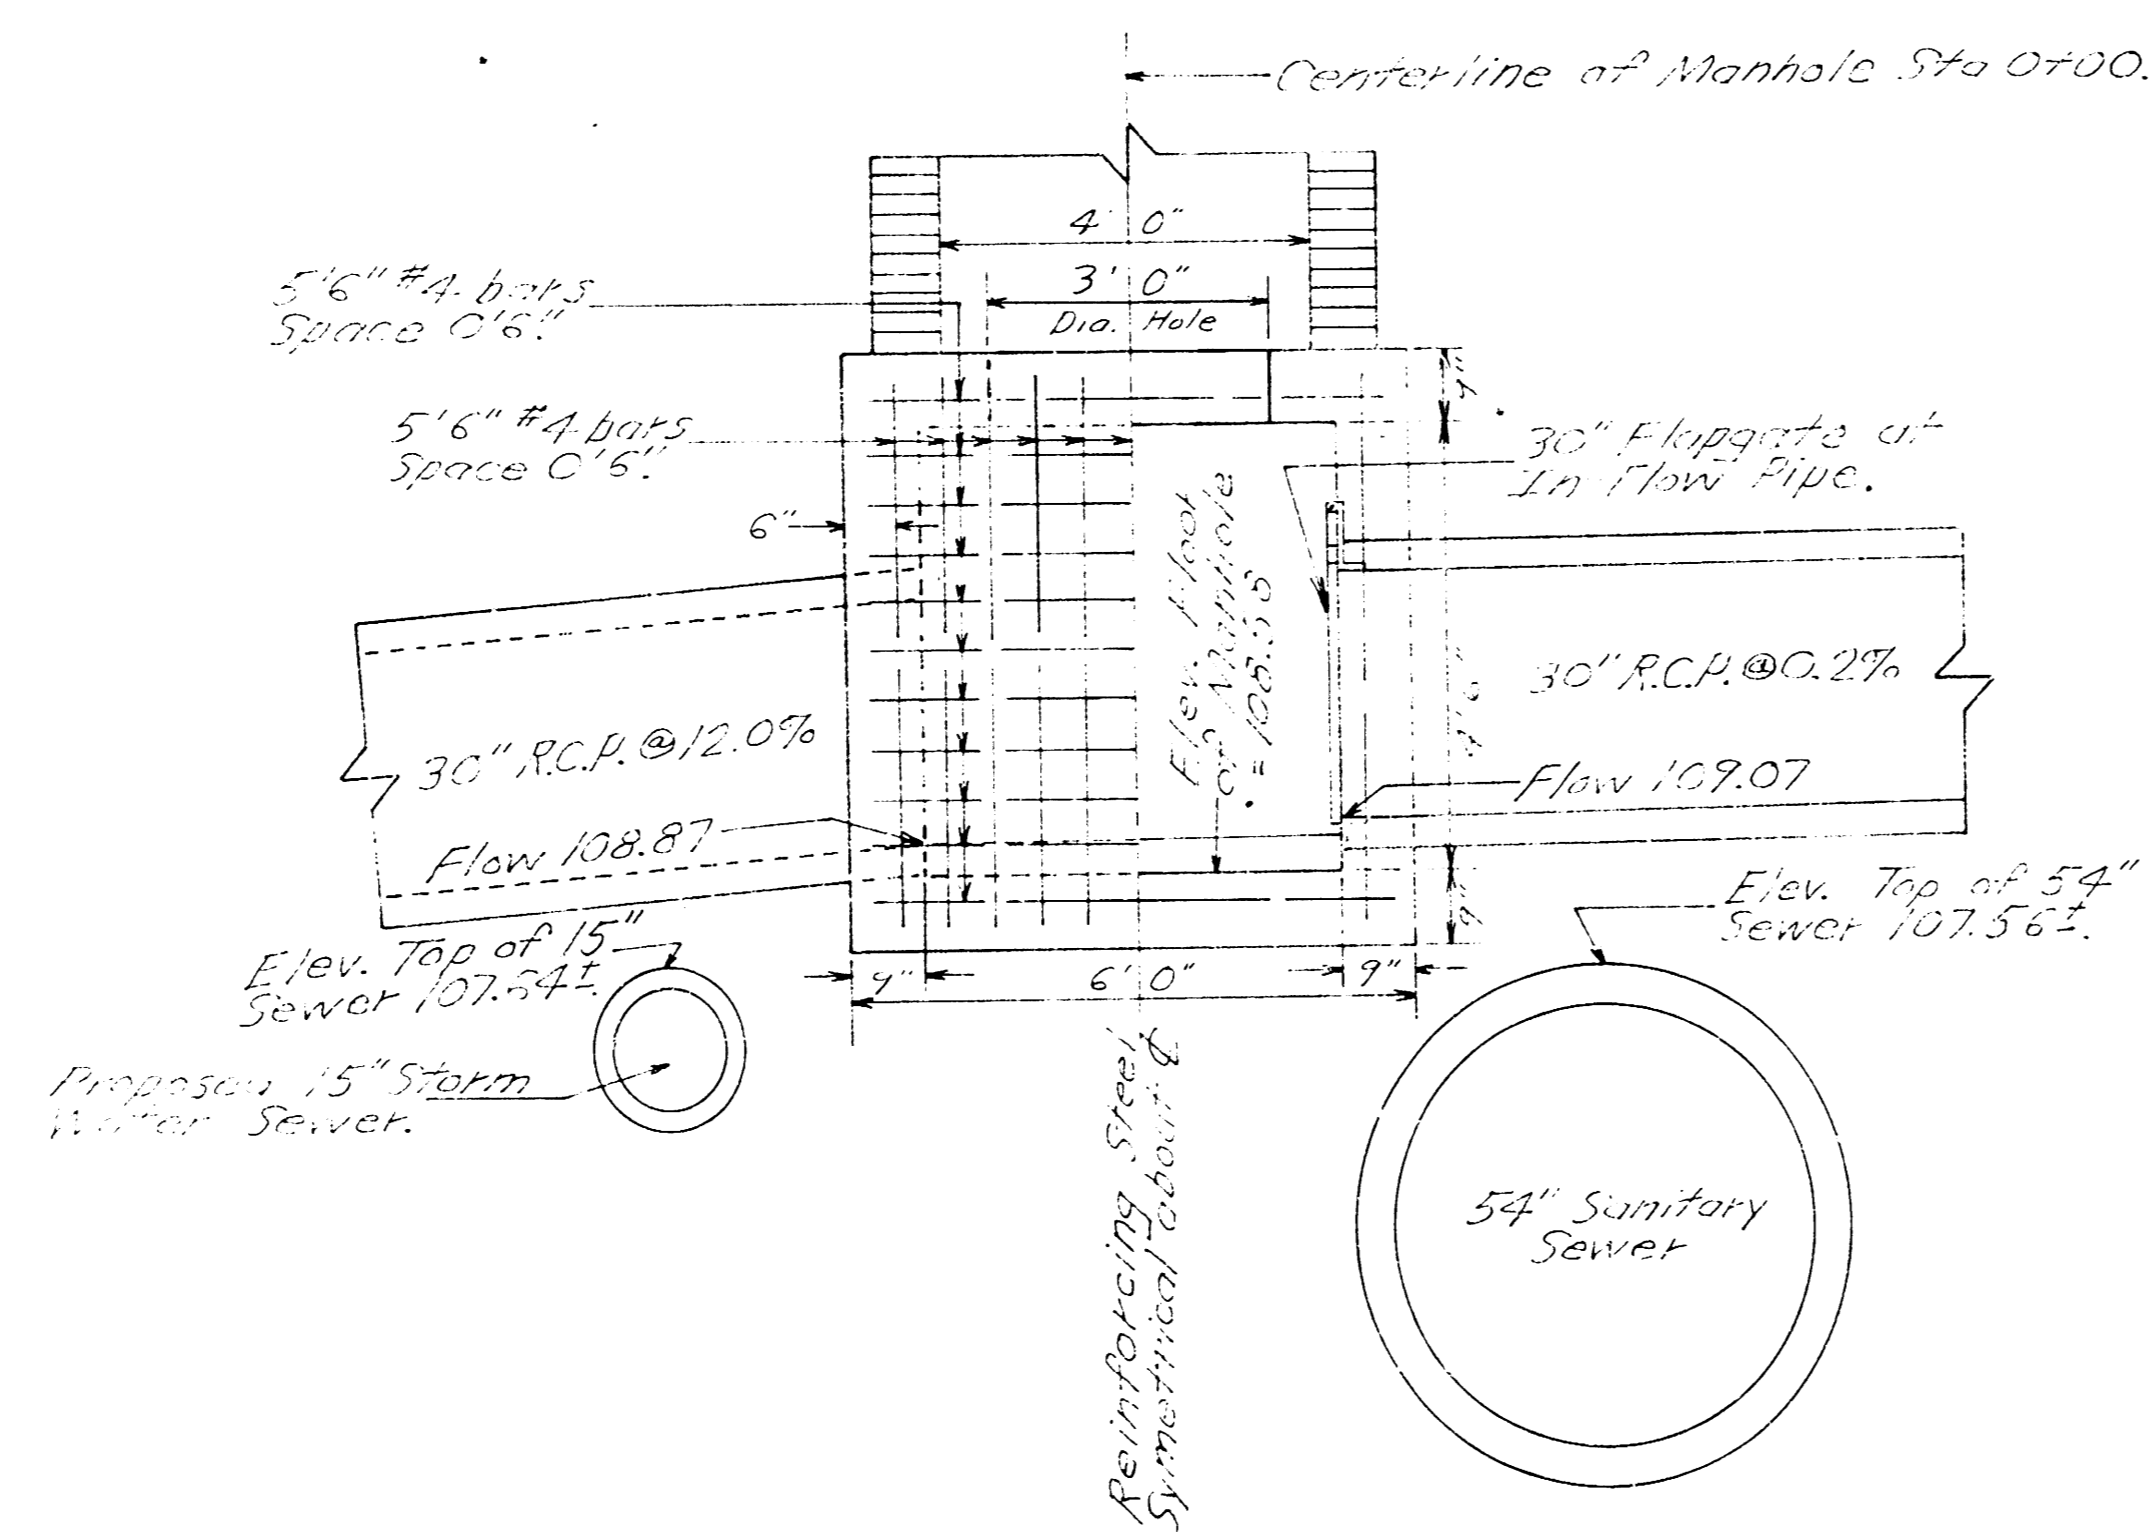 Centerline of Manhole Sta 0+00.
4' 0"
3' 0"
Dia. Hole
5'6" #4 bars
Space 0'6".
5'6" #4 bars
Space 0'6".
6"
9"
30" Flapgate at
In-Flow Pipe.
Elev. Floor
of Manhole
30" R.C.P. @ 0.2%
30" R.C.P. @ 12.0%
Flow 109.07
Flow 108.87
Elev. Top of 15"
Sewer
Elev. Top of 54"
Sewer 107.56±.
9"
9"
6' 0"
9"
Proposed 15" Storm
Water Sewer.
54" Sanitary
Sewer
Reinforcing Steel
Symetrical about ℄